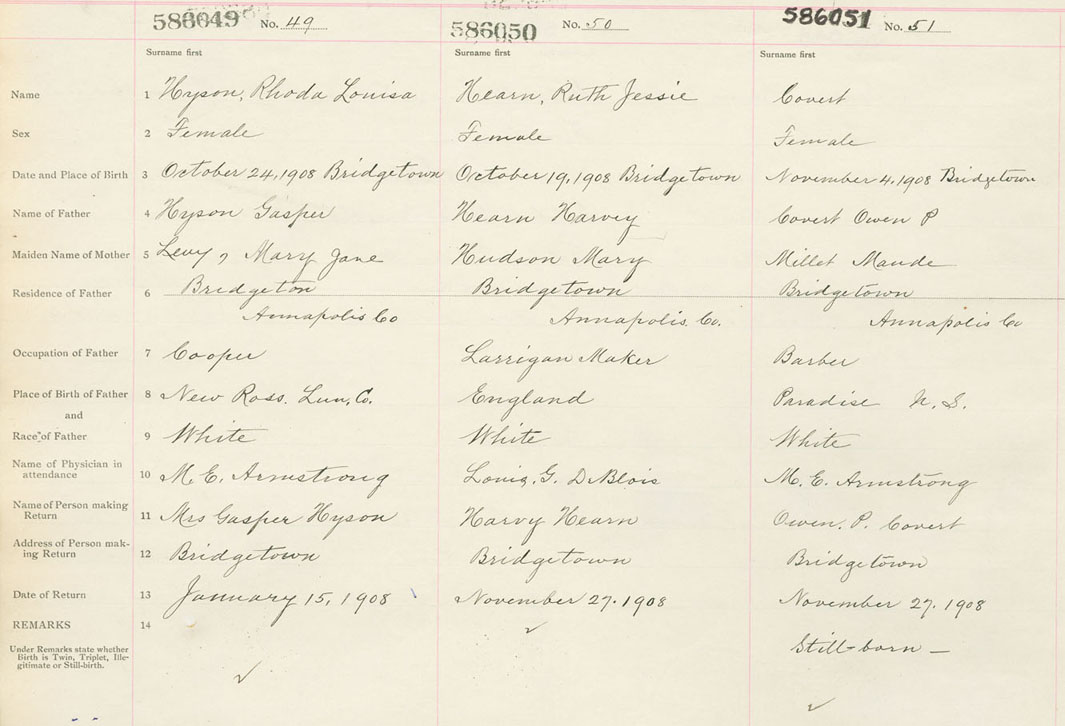 586049 No. 49 586050 No. 50 586051 No. 51
Surname first Surname first Surname first
Name 1 Hyson, Rhoda Louisa Hearn, Ruth Jessie Covert
Sex 2 Female Female Female
Date and Place of Birth 3 October 24, 1908 Bridgetown October 19, 1908 Bridgetown November 4, 1908 Bridgetown
Name of Father 4 Hyson Gasper Hearn Harvey Covert Owen P
Maiden Name of Mother 5 Levy, Mary Jane Hudson Mary Millet Maude
Residence of Father 6 Bridgeton Bridgetown Bridgetown
Annapolis Co Annapolis. Co. Annapolis Co
Occupation of Father 7 Cooper Larrigan Maker Barber
Place of Birth of Father 8 New Ross. Lun, Co. England Paradise N. S.
and
Race of Father 9 White White White
Name of Physician in
attendance 10 M. E. Armstrong Louis. G. DeBlois M. E. Armstrong
Name of Person making
Return 11 Mrs Gasper Hyson Harvy Hearn Owen. P. Covert
Address of Person mak-
ing Return 12 Bridgetown Bridgetown Bridgetown
Date of Return 13 January 15, 1908 November 27. 1908 November 27. 1908
REMARKS 14
Under Remarks state whether
Birth is Twin, Triplet, Ille-
gitimate or Still-birth.
Still-born —